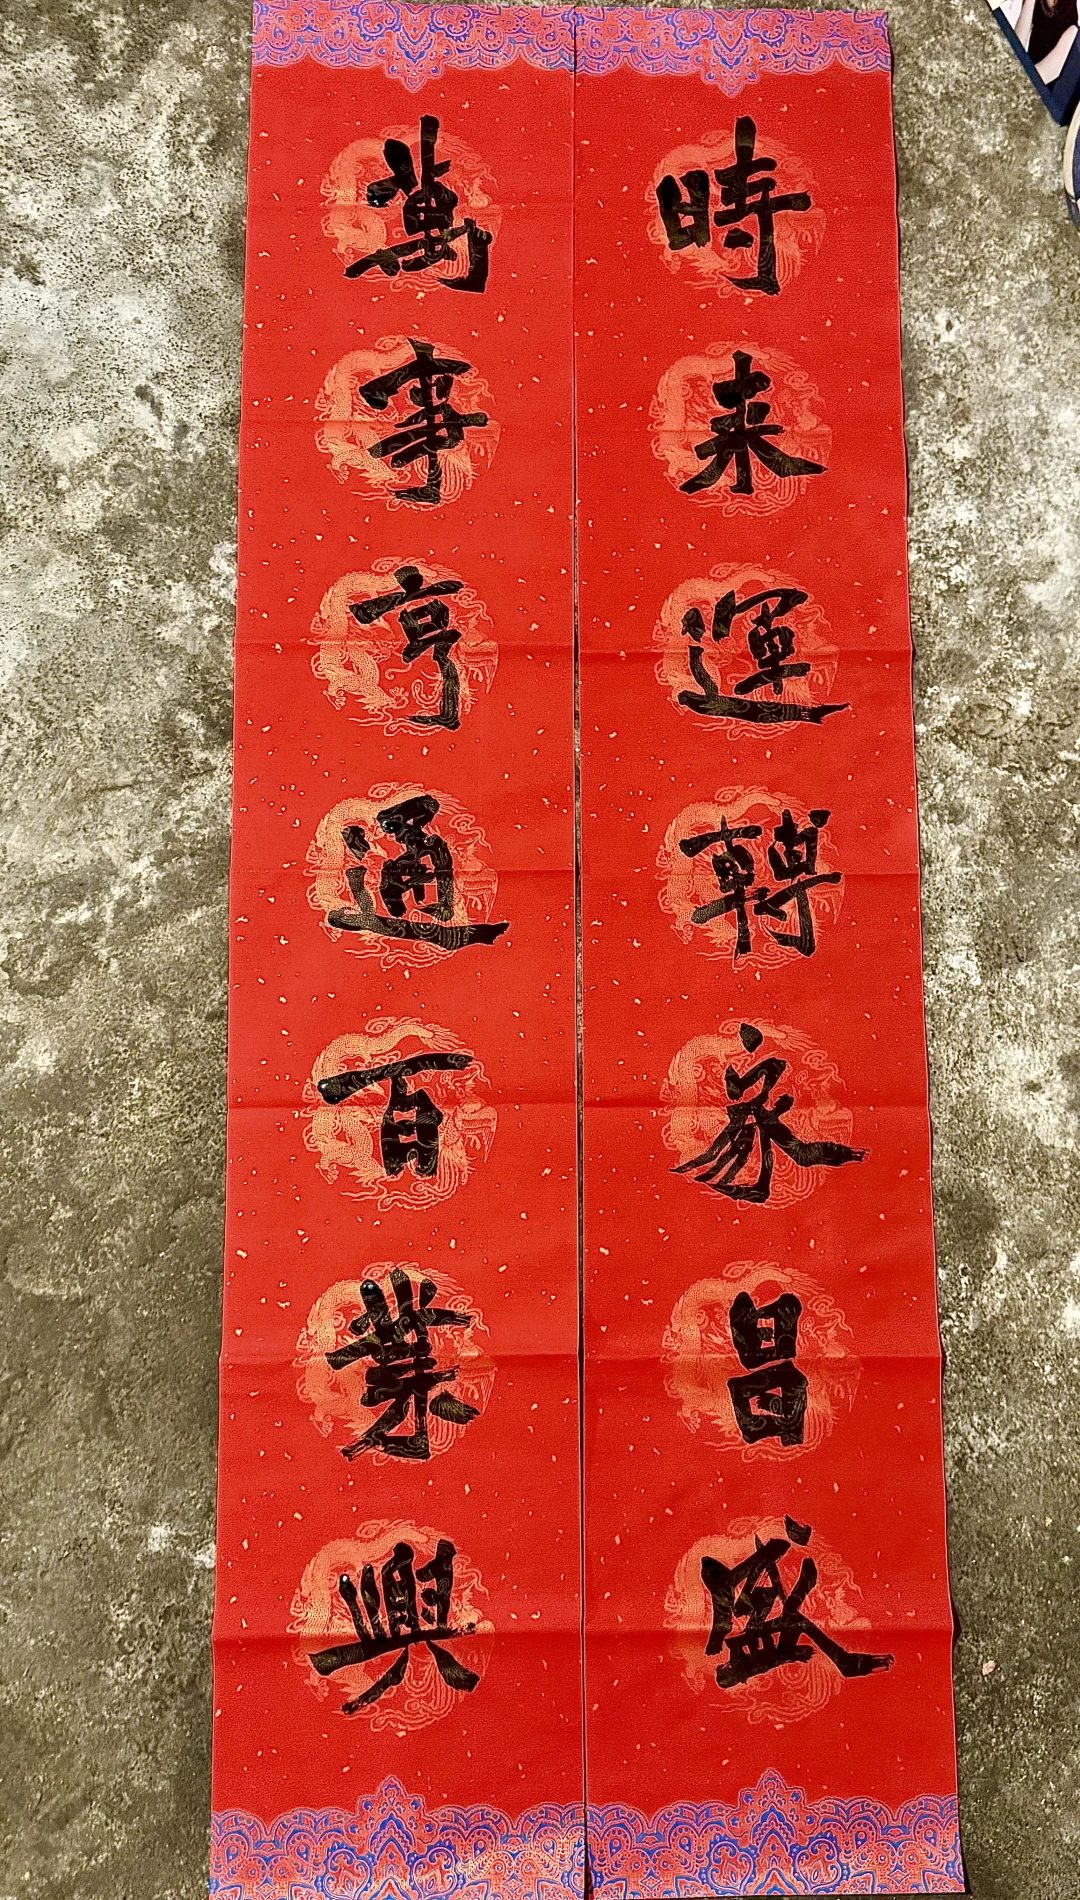 時来運轉家昌盛
萬事亨通百業興